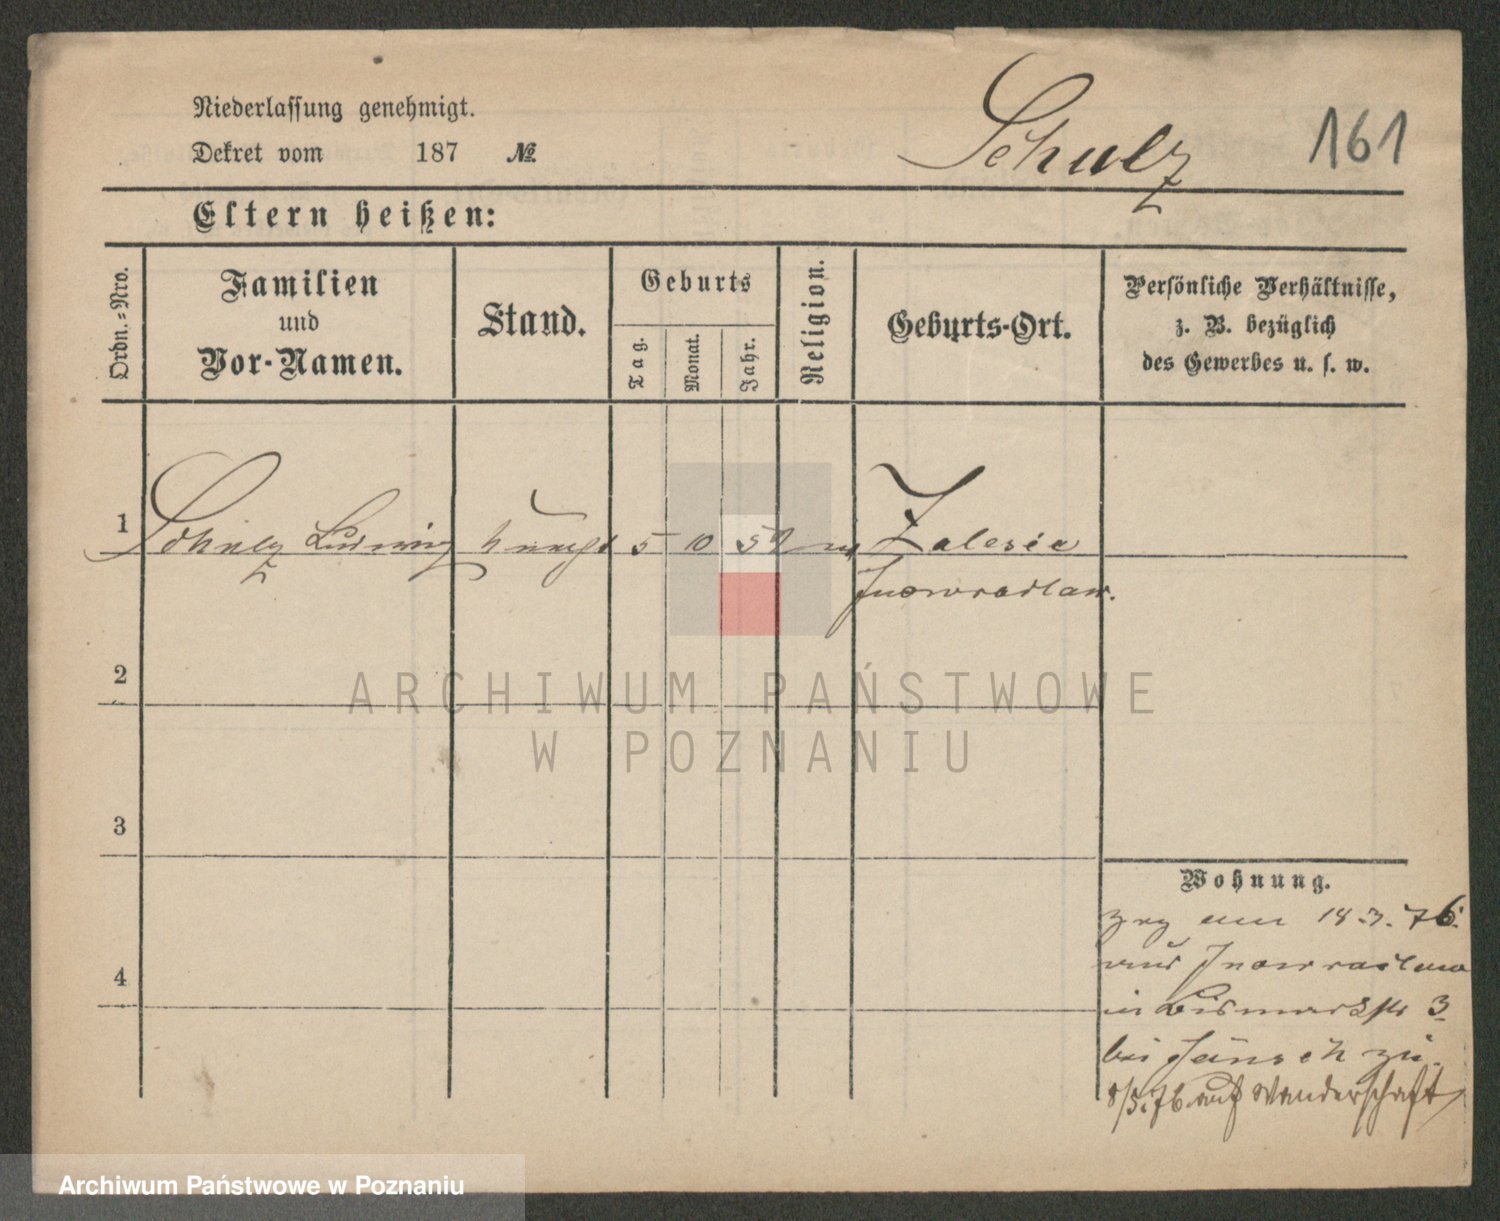 Niederlassung genehmigt.
Dekret vom 187 №
Schulz
161
Eltern heißen:
Ordn.=Nro.
Familien
und
Vor-Namen.
Stand.
Geburts
Tag.
Monat.
Jahr.
Religion.
Geburts-Ort.
Persönliche Verhältnisse,
z. B. bezüglich
des Gewerbes u. s. w.
1 Schulz Ludwig 5 10 Zalesie
Inowradlaw.
2
3
4
Wohnung.
zog am 18.3.76.
aus Inowradlaw
in Bismarkstr 3
bei Jänsch zu.
8/5.76 auf Wanderschaft
ARCHIWUM PAŃSTWOWE
W POZNANIU
Archiwum Państwowe w Poznaniu